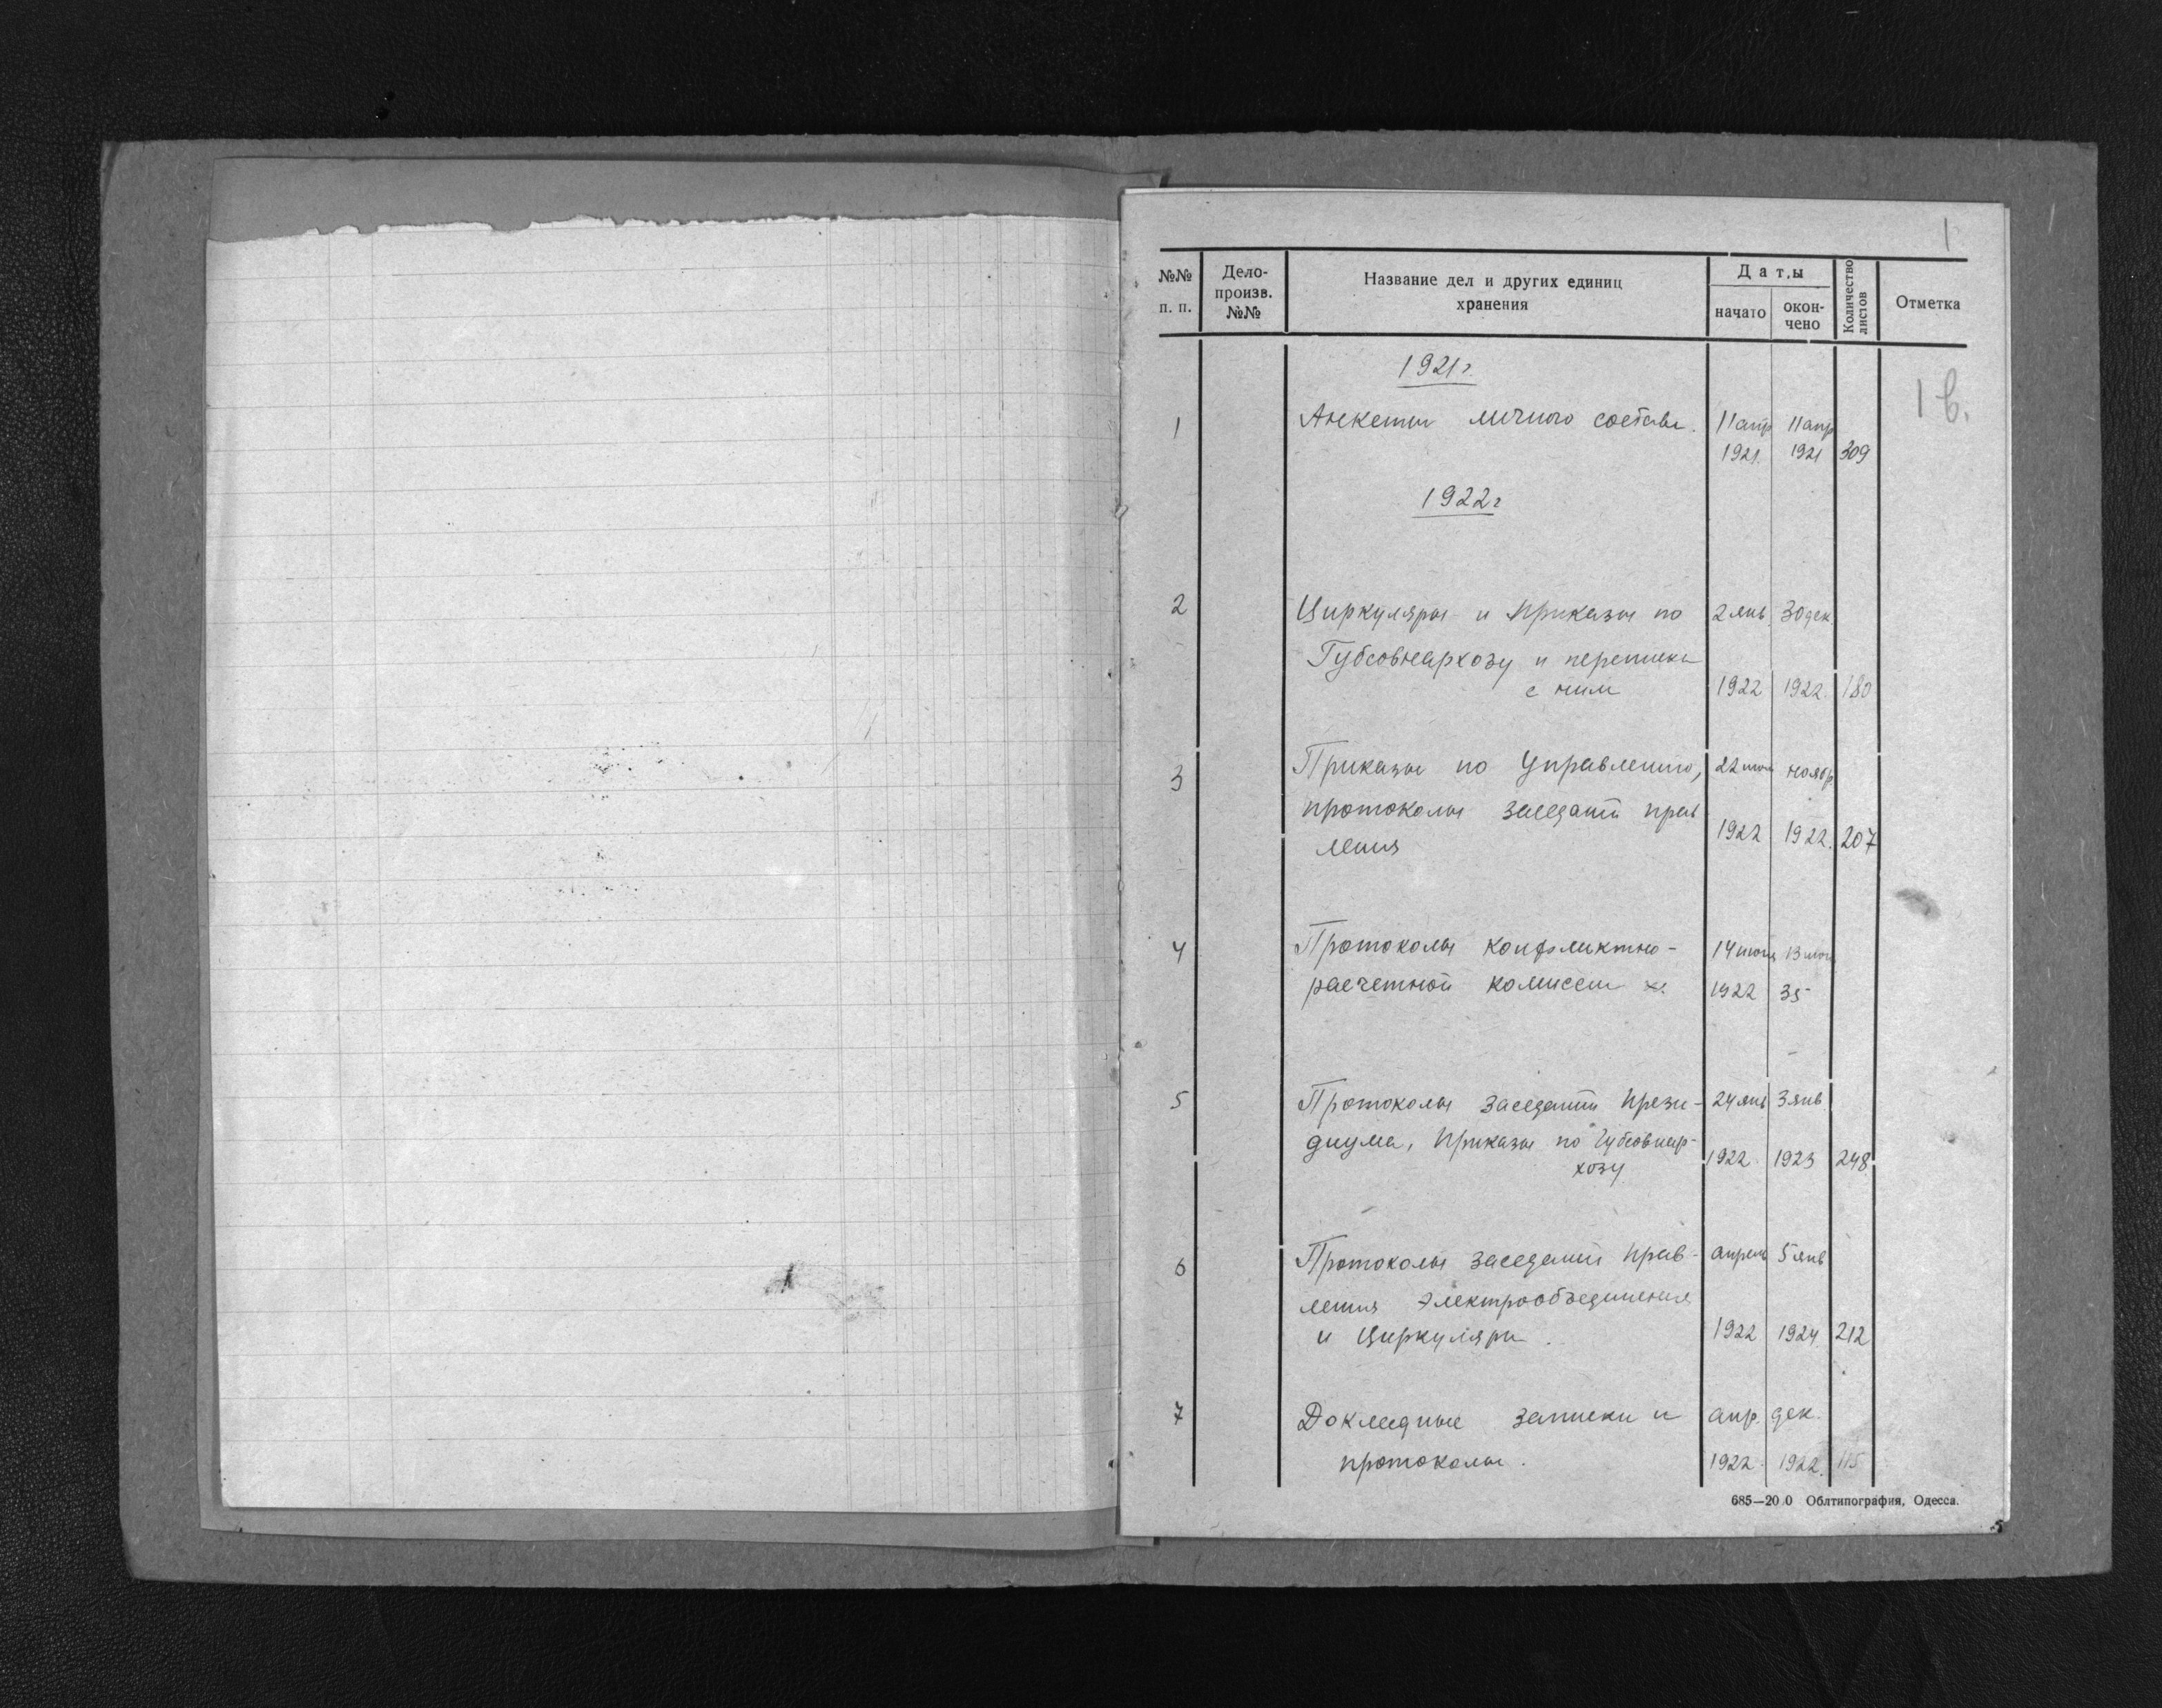 1
№№ п. п.
Дело-произв. №№
Название дел и других единиц
хранения
Даты
начато
окон-
чено
Количество листов
Отметка
1921г.
1 Анкеты личного состава. 11 апр 11 апр
1921. 1921 309
1 в.
1922г
2 Циркуляры и приказы по 2 янв 30 дек.
Губсовнархозу и переписка
с ним 1922 1922. 180
3 Приказы по Управлению, 22 ноябр
протоколы заседаний прав
ления 1922 1922. 207
4 Протоколы конфликтно- 14 13
расчетной комиссии 1922 35
5 Протоколы заседаний прези- 24 янв 3 янв
диума, приказы по Губсовнар-
хозу 1922. 1923 248
6 Протоколы заседаний прав- апрель 5 янв
ления электрообъединения
и циркуляры. 1922 1924 212
7 Докладные записки и апр. дек.
протоколы. 1922. 1922. 115
685—20 0 Облтипография, Одесса.